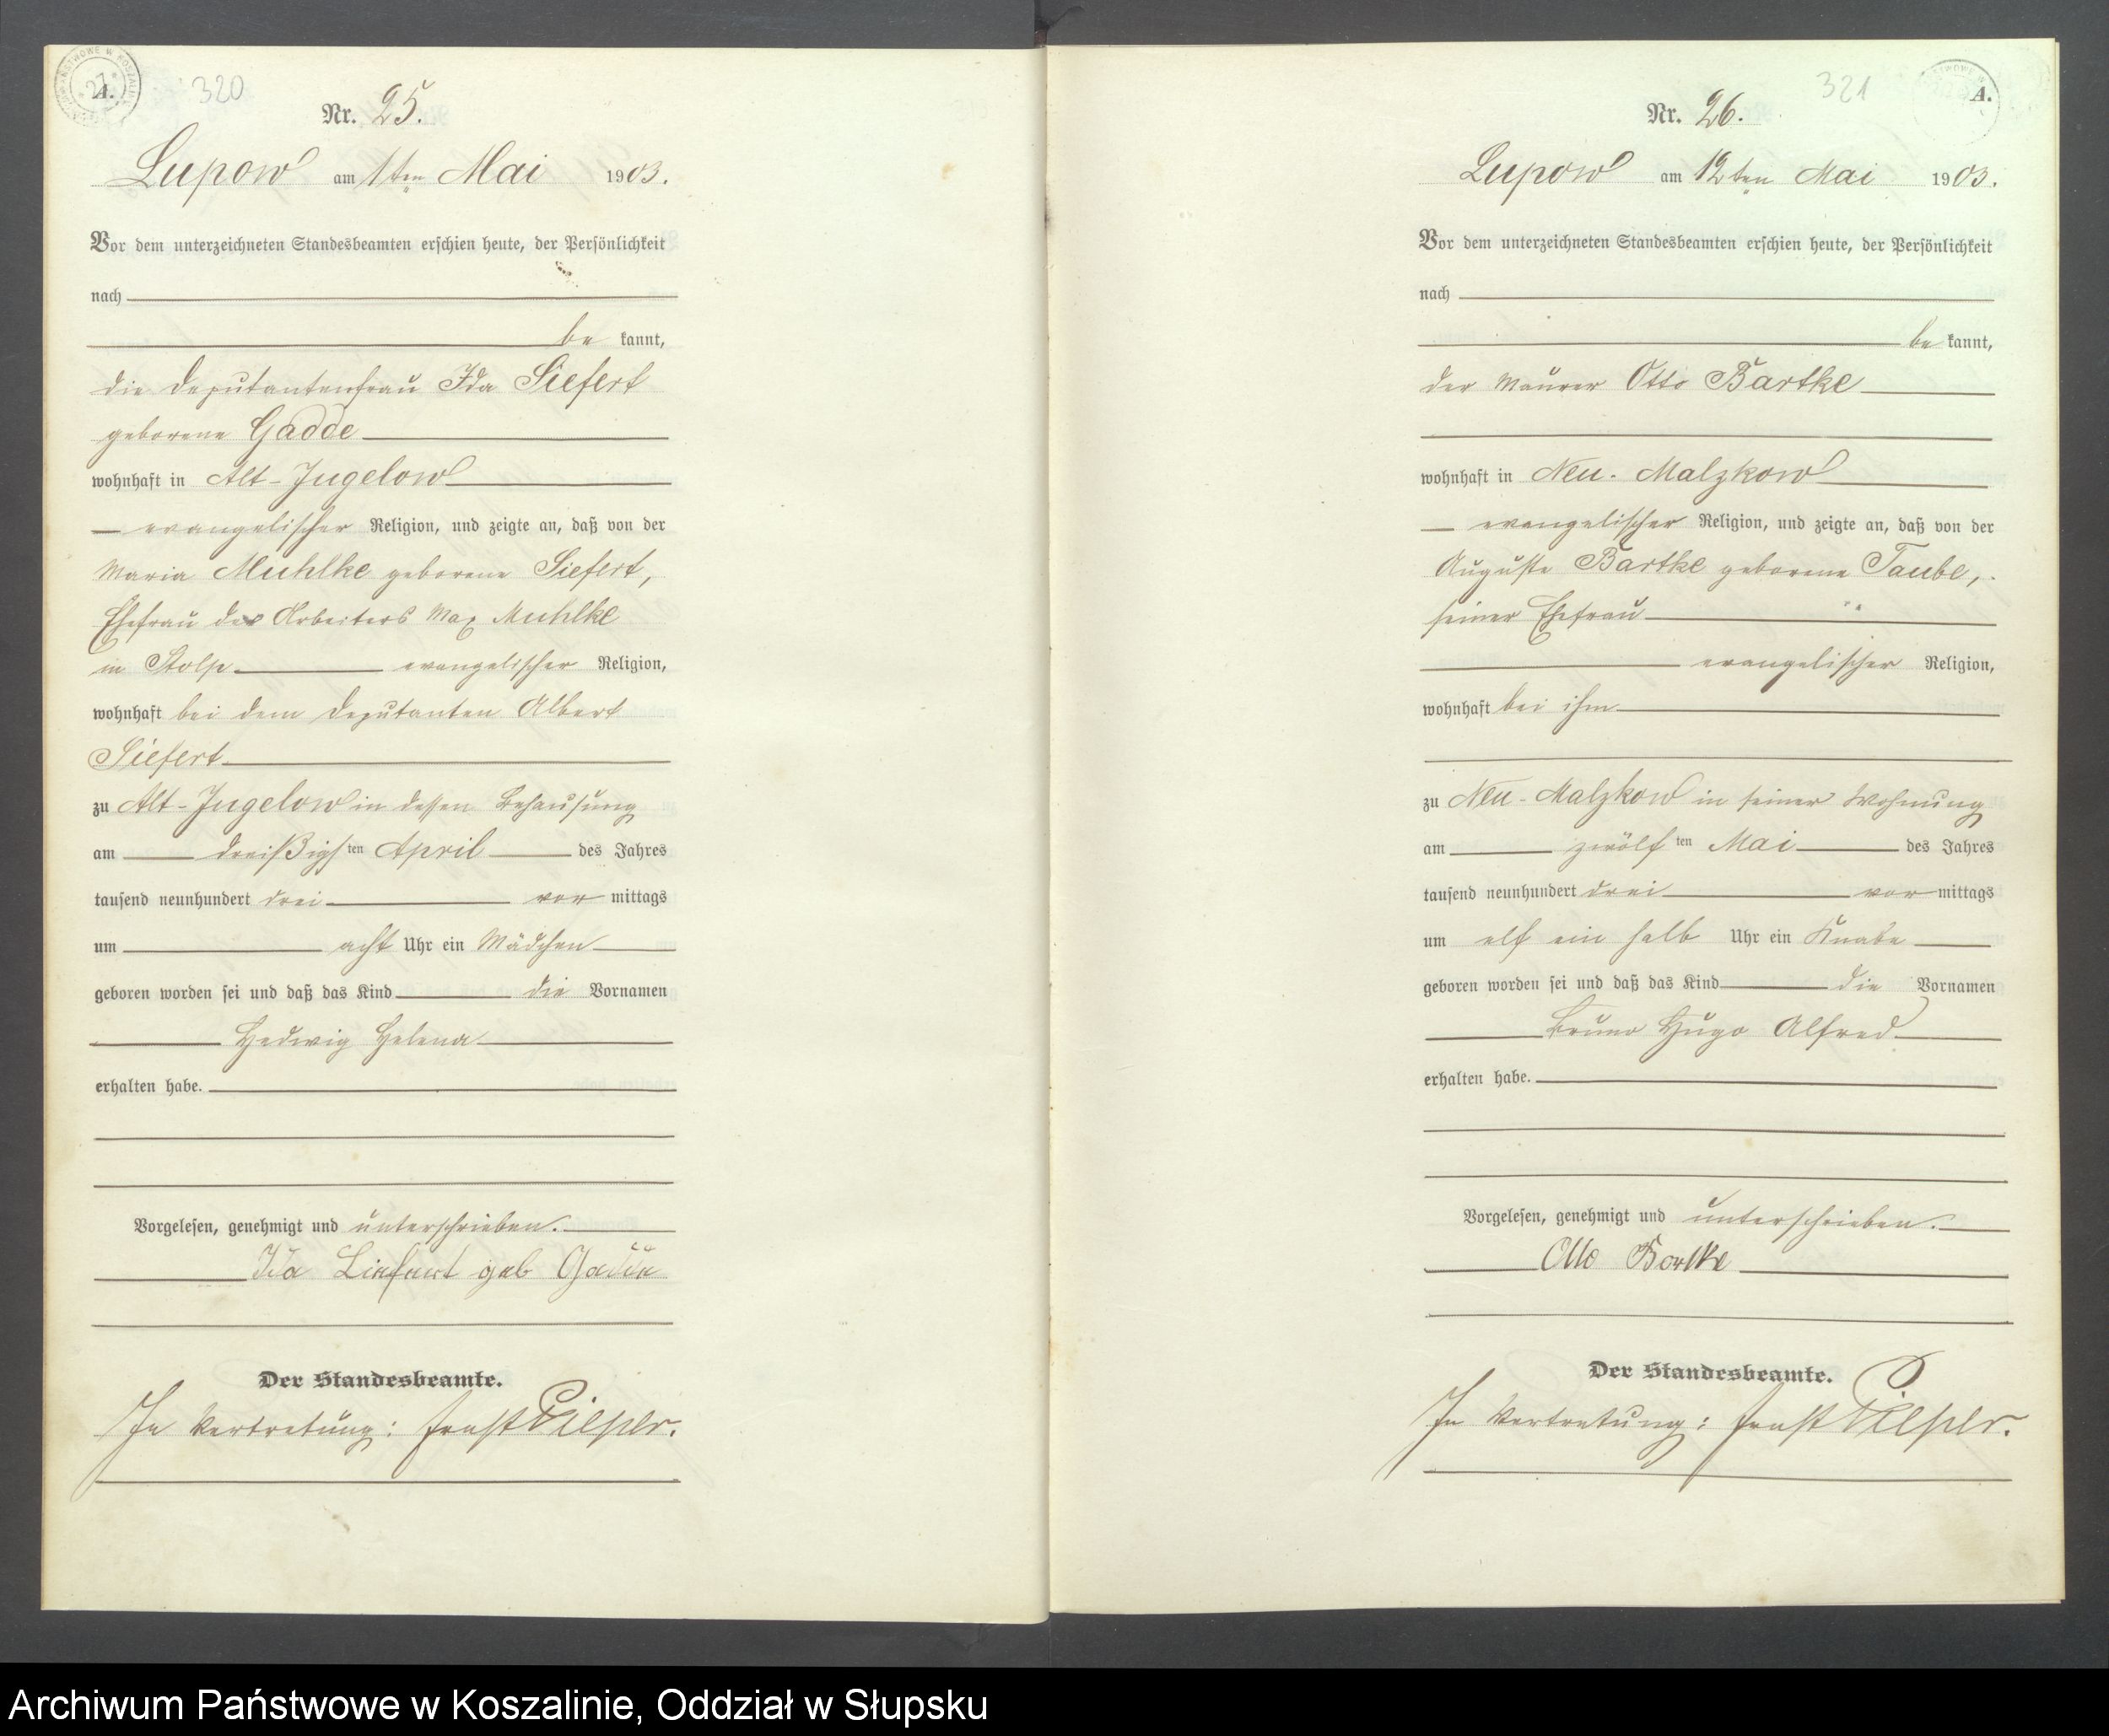 320
A.
Nr. 25.
Lupow am 1ten Mai 1903.
Vor dem unterzeichneten Standesbeamten erschien heute, der Persönlichkeit
nach
be kannt,
die Deputantenfrau Ida Siefert
geborene Gadde
wohnhaft in Alt-Jugelow
evangelischer Religion, und zeigte an, daß von der
Maria Muhlke geborene Siefert,
Ehefrau des Arbeiters Max Muhlke
in Stolp evangelischer Religion,
wohnhaft bei dem Deputanten Albert
Siefert
zu Alt-Jugelow in dessen Behausung
am dreißigsten April des Jahres
tausend neunhundert drei vor mittags
um acht Uhr ein Mädchen
geboren worden sei und daß das Kind die Vornamen
Hedwig Helena
erhalten habe.
Vorgelesen, genehmigt und unterschrieben.
Ida Siefert geb Gadde
Der Standesbeamte.
In Vertretung: Ernst Pieper.
321
A.
Nr. 26.
Lupow am 12ten Mai 1903.
Vor dem unterzeichneten Standesbeamten erschien heute, der Persönlichkeit
nach
be kannt,
der Maurer Otto Bartke
wohnhaft in Neu-Malzkow
evangelischer Religion, und zeigte an, daß von der
Auguste Bartke geborene Taube,
seiner Ehefrau
evangelischer Religion,
wohnhaft bei ihm
zu Neu-Malzkow in seiner Wohnung
am zwölften Mai des Jahres
tausend neunhundert drei vor mittags
um elf ein halb Uhr ein Knabe
geboren worden sei und daß das Kind die Vornamen
Bruno Hugo Alfred
erhalten habe.
Vorgelesen, genehmigt und unterschrieben.
Otto Bartke
Der Standesbeamte.
In Vertretung: Ernst Pieper.
Archiwum Państwowe w Koszalinie, Oddział w Słupsku